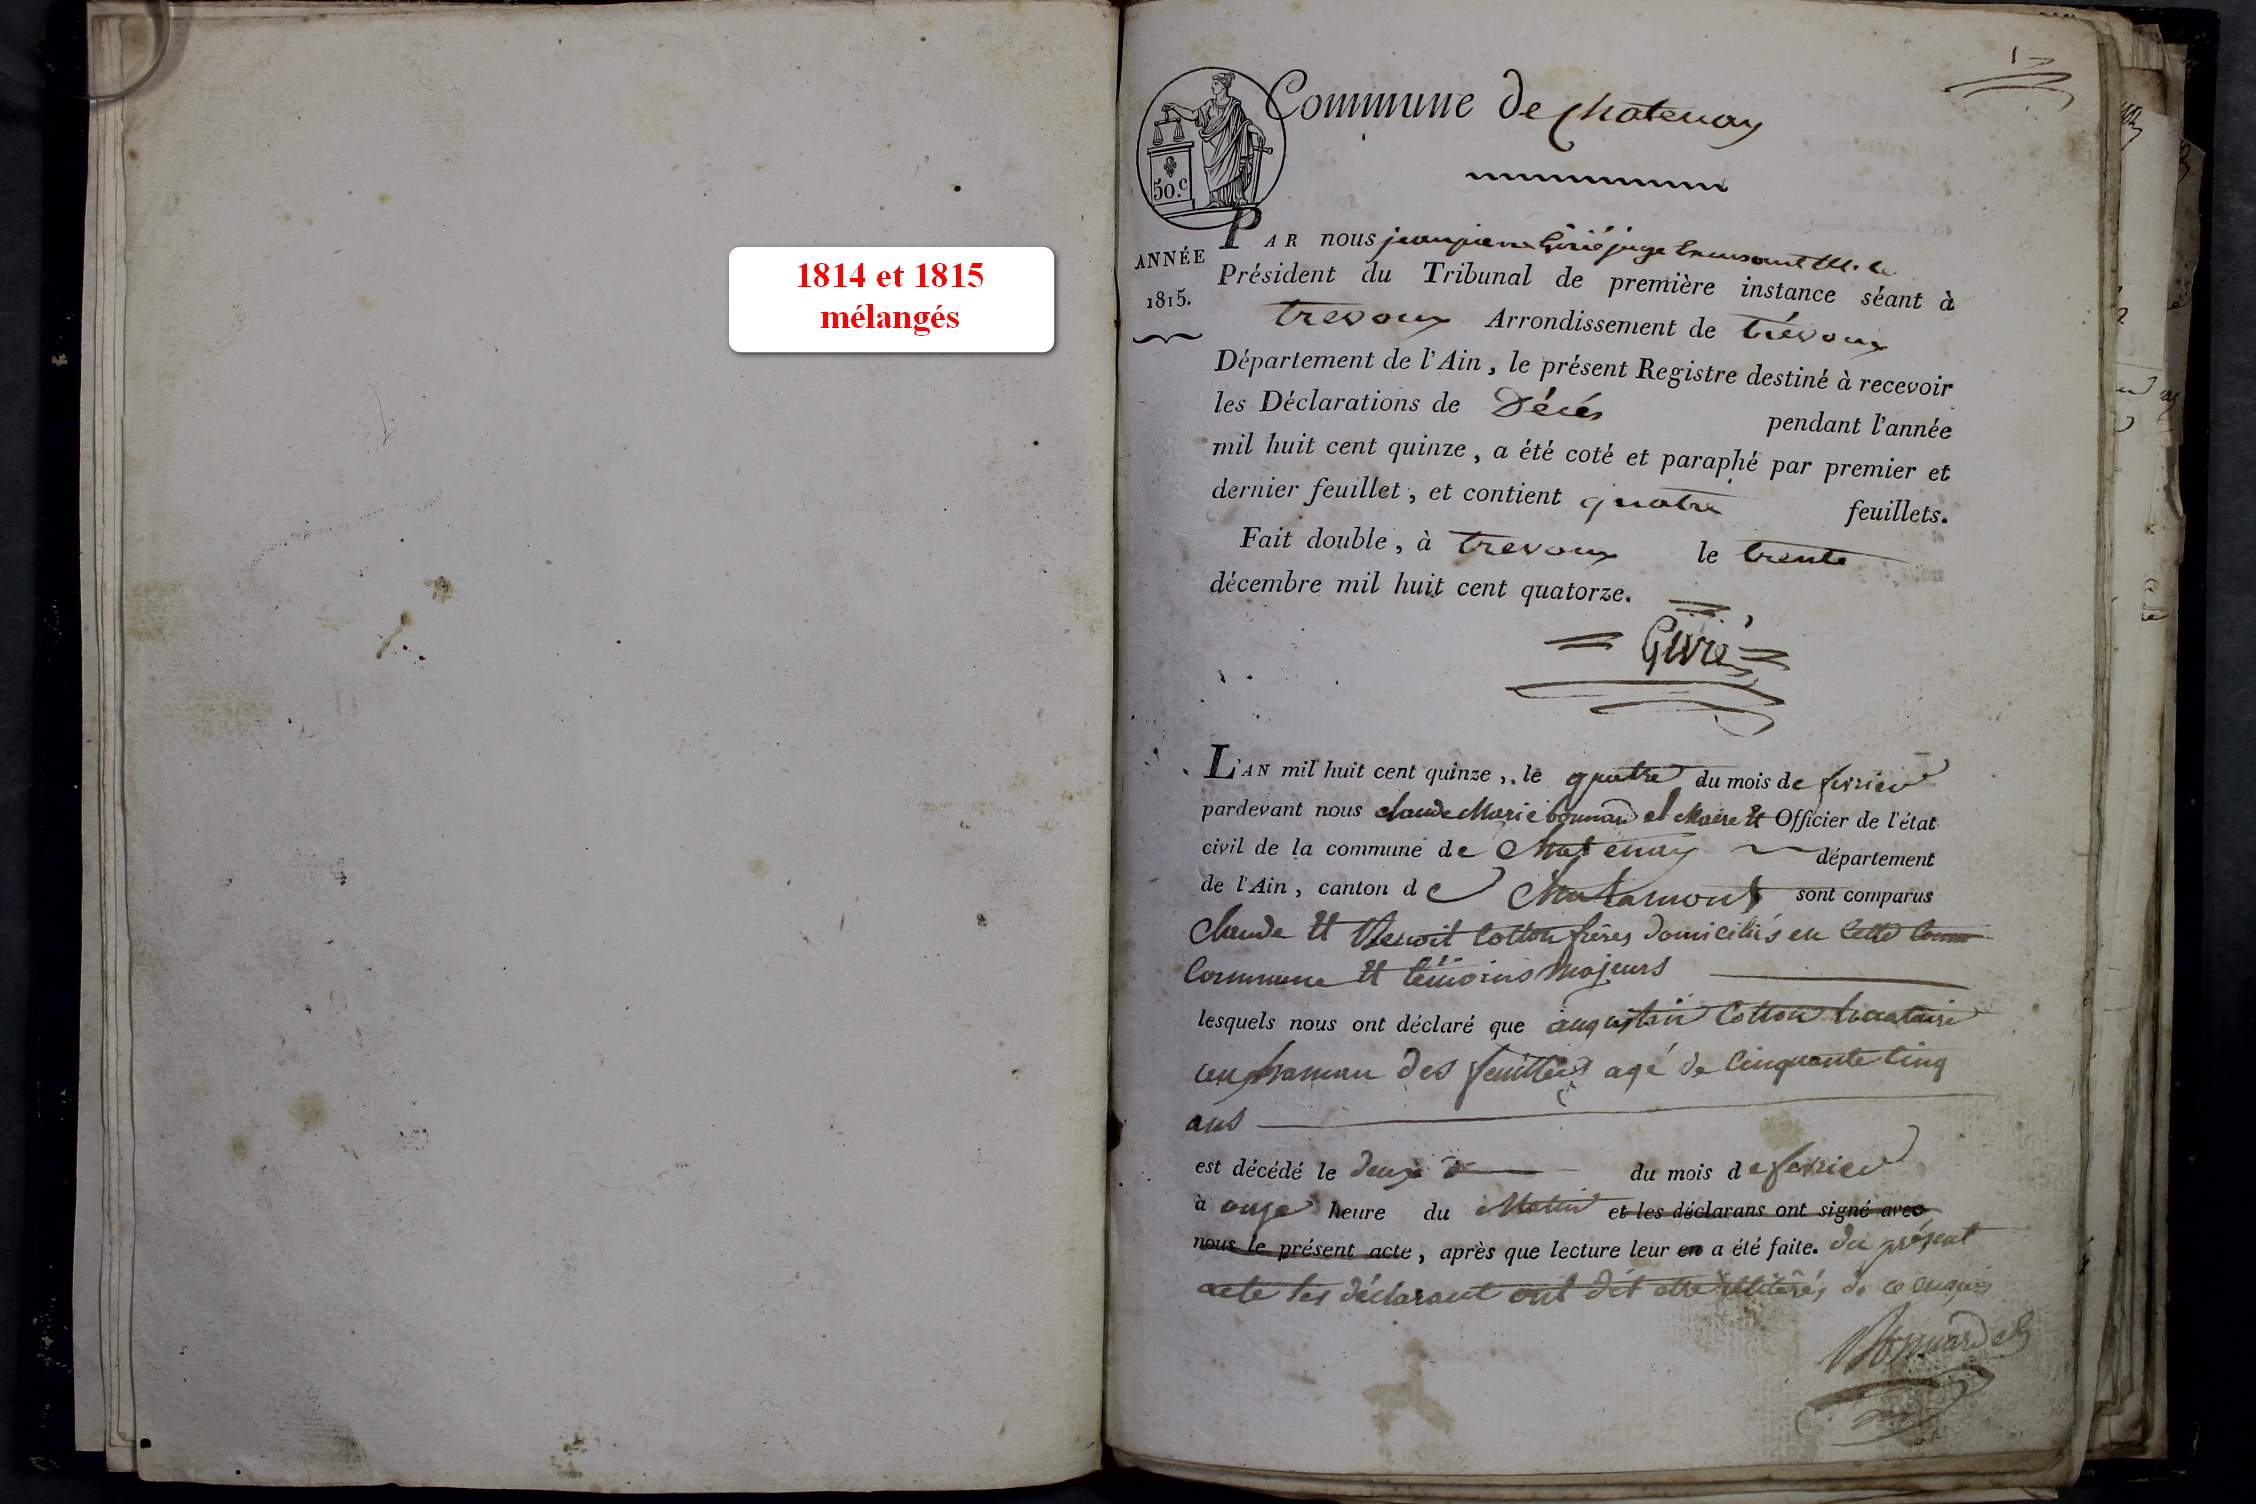 1814 et 1815
mélangés
Commune de Chatenay
50.c
ANNÉE
1815.
PAR nous jean pierre juge
Président du Tribunal de première instance séant à
trevoux Arrondissement de trévoux
Département de l'Ain, le présent Registre destiné à recevoir
les Déclarations de Décés pendant l'année
mil huit cent quinze, a été coté et paraphé par premier et
dernier feuillet, et contient quatre feuillets.
Fait double, à trevoux le trente
décembre mil huit cent quatorze.
L'AN mil huit cent quinze, le quatre du mois de fevrier
pardevant nous claude Marie bonnardel Maire et Officier de l'état
civil de la commune de Chatenay département
de l'Ain, canton de Chalamont sont comparus
Claude et Benoit Cotton frères domiciliés en cette
Commune et témoins majeurs
lesquels nous ont déclaré que augustin Cotton locataire
au hamau des feuillées agé de Cinquante Cinq
ans
est décédé le deux du mois de fevrier
à onze heure du Matin et les déclarans ont signé avec
nous le présent acte, après que lecture leur en a été faite. du présent
acte les déclarant ont dit etre illitérés de ce enquis
Bonnardel